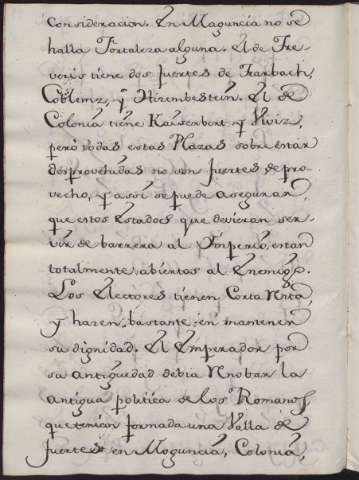 consideracion. En Maguncia no se
halla Fortaleza alguna. El de Tre-
veris tiene dos fuertes de Trarbach,
Coblemz, y Hirembestein. El de
Colonia tiene Kaiserbert y Nuiz,
pero todas estas Plazas sobre estar
desprovehidas no son fuertes de pro-
vecho, y assi se puede asegurar
que estos Estados que devieran ser-
vir de barrera al Ymperio, estan
totalmente abiertas al Enemigo.
Los Electores tienen Corta Renta
y hazen bastante en mantener
su dignidad. El Emperador por
su antiguedad devia renobar la
antigua politica de los Romanos
que tenian formada una Valla de
fuertes en Moguncia, Colonia,